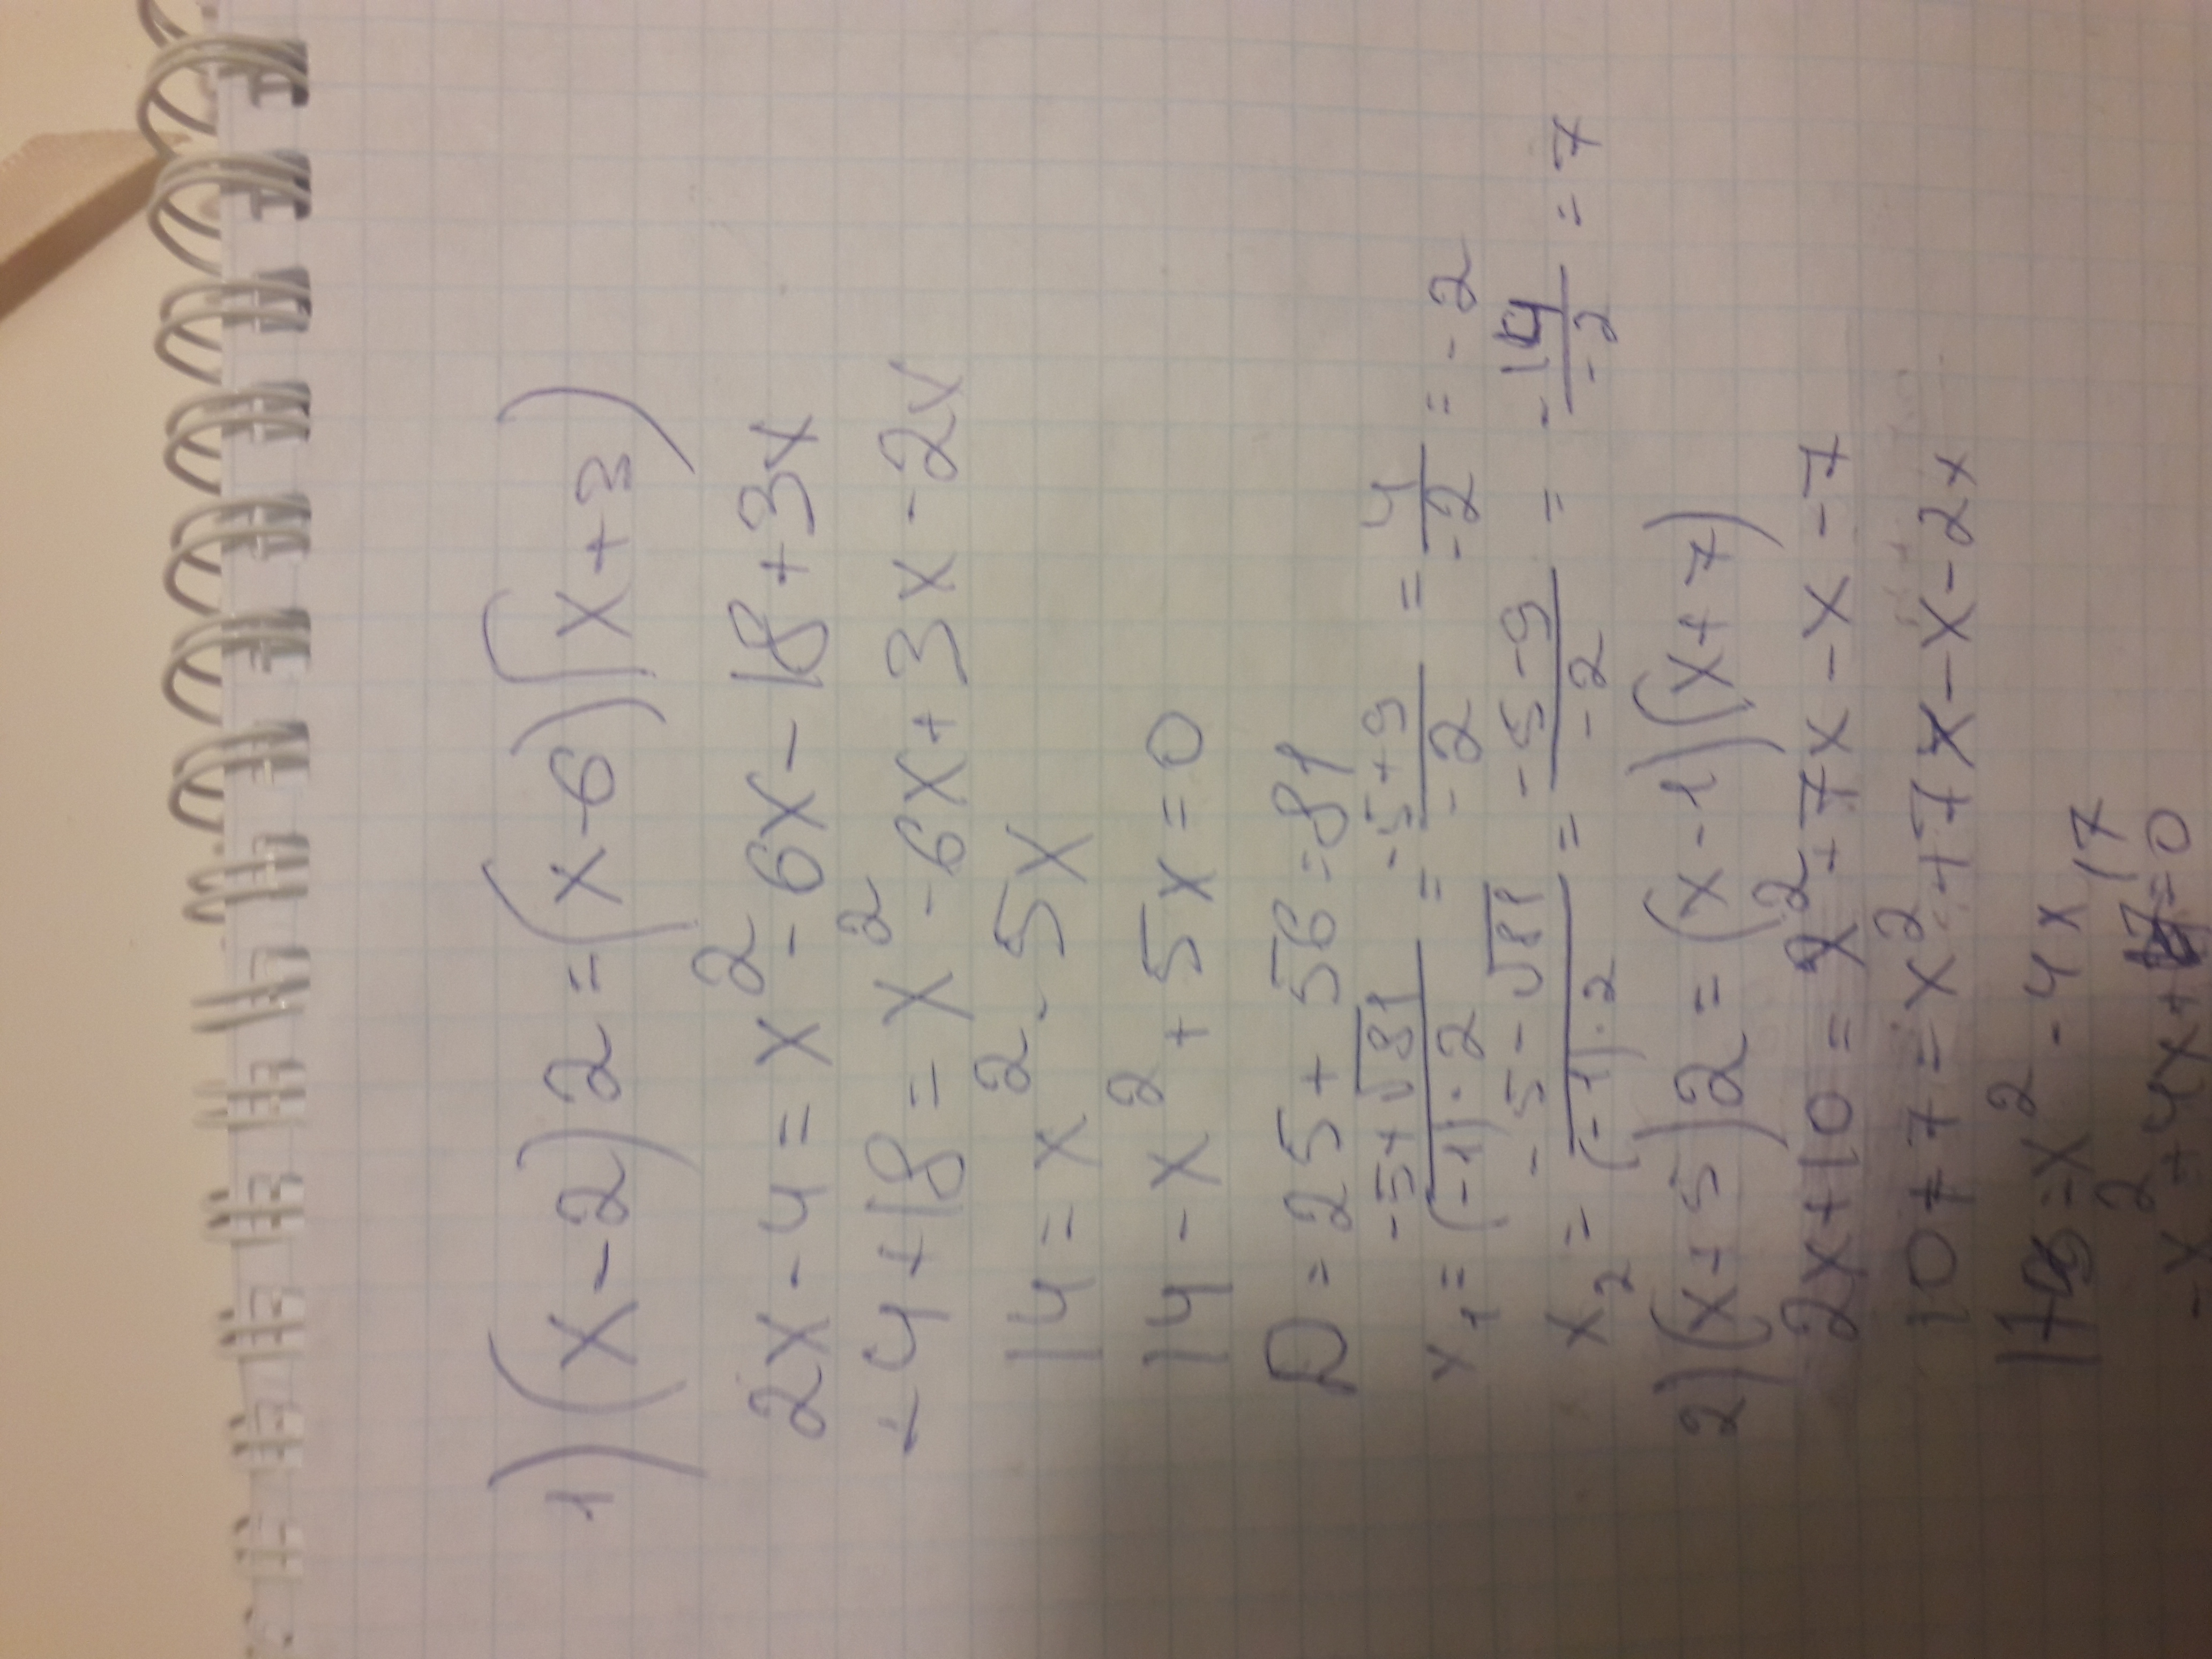 1) (x-2)2=(x-6)(x+3)
2x-4=x²-6x-18+3x
-4+18=x²-6x+3x-2x
14=x²-5x
14-x²+5x=0
D=25+56=81
x₁=(-5+√81)/((-1)·2)=(-5+9)/(-2)=4/(-2)=-2
x₂=(-5-√81)/((-1)·2)=(-5-9)/(-2)=(-14)/(-2)=7
2) (x+5)2=(x-1)(x+7)
2x+10=x²+7x-x-7
10+7=x²+7x-x-2x
=x²-4x
-x²+4x+17=0